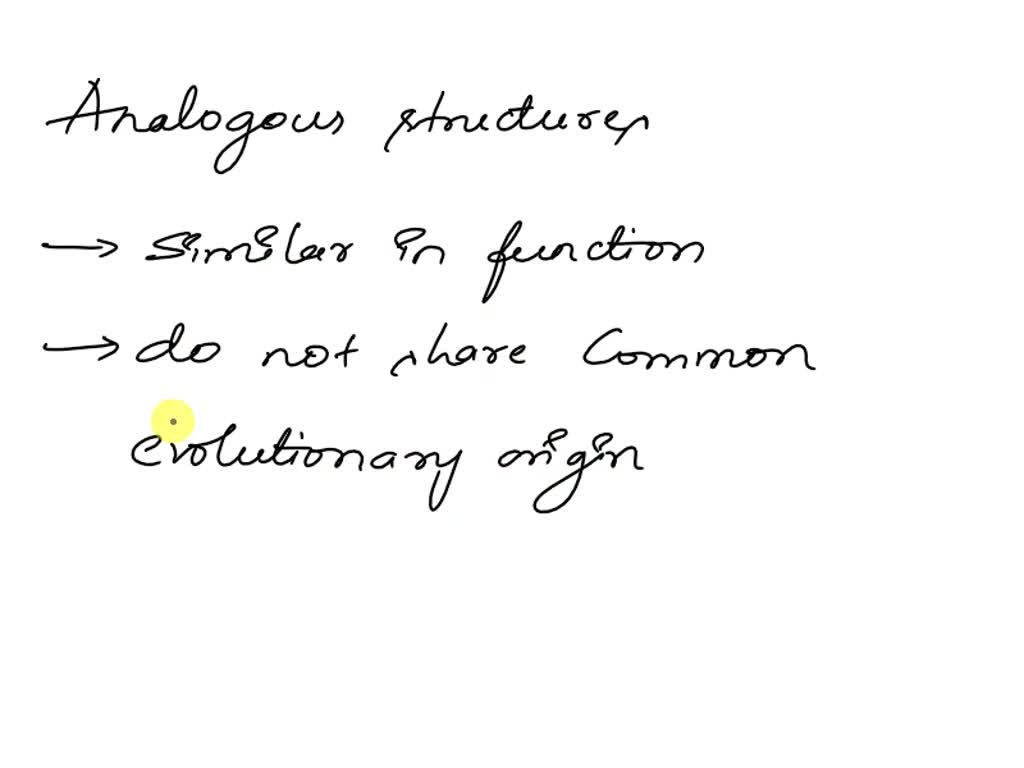 Analogous structures
→ Similar in function
→ do not share Common
evolutionary origin